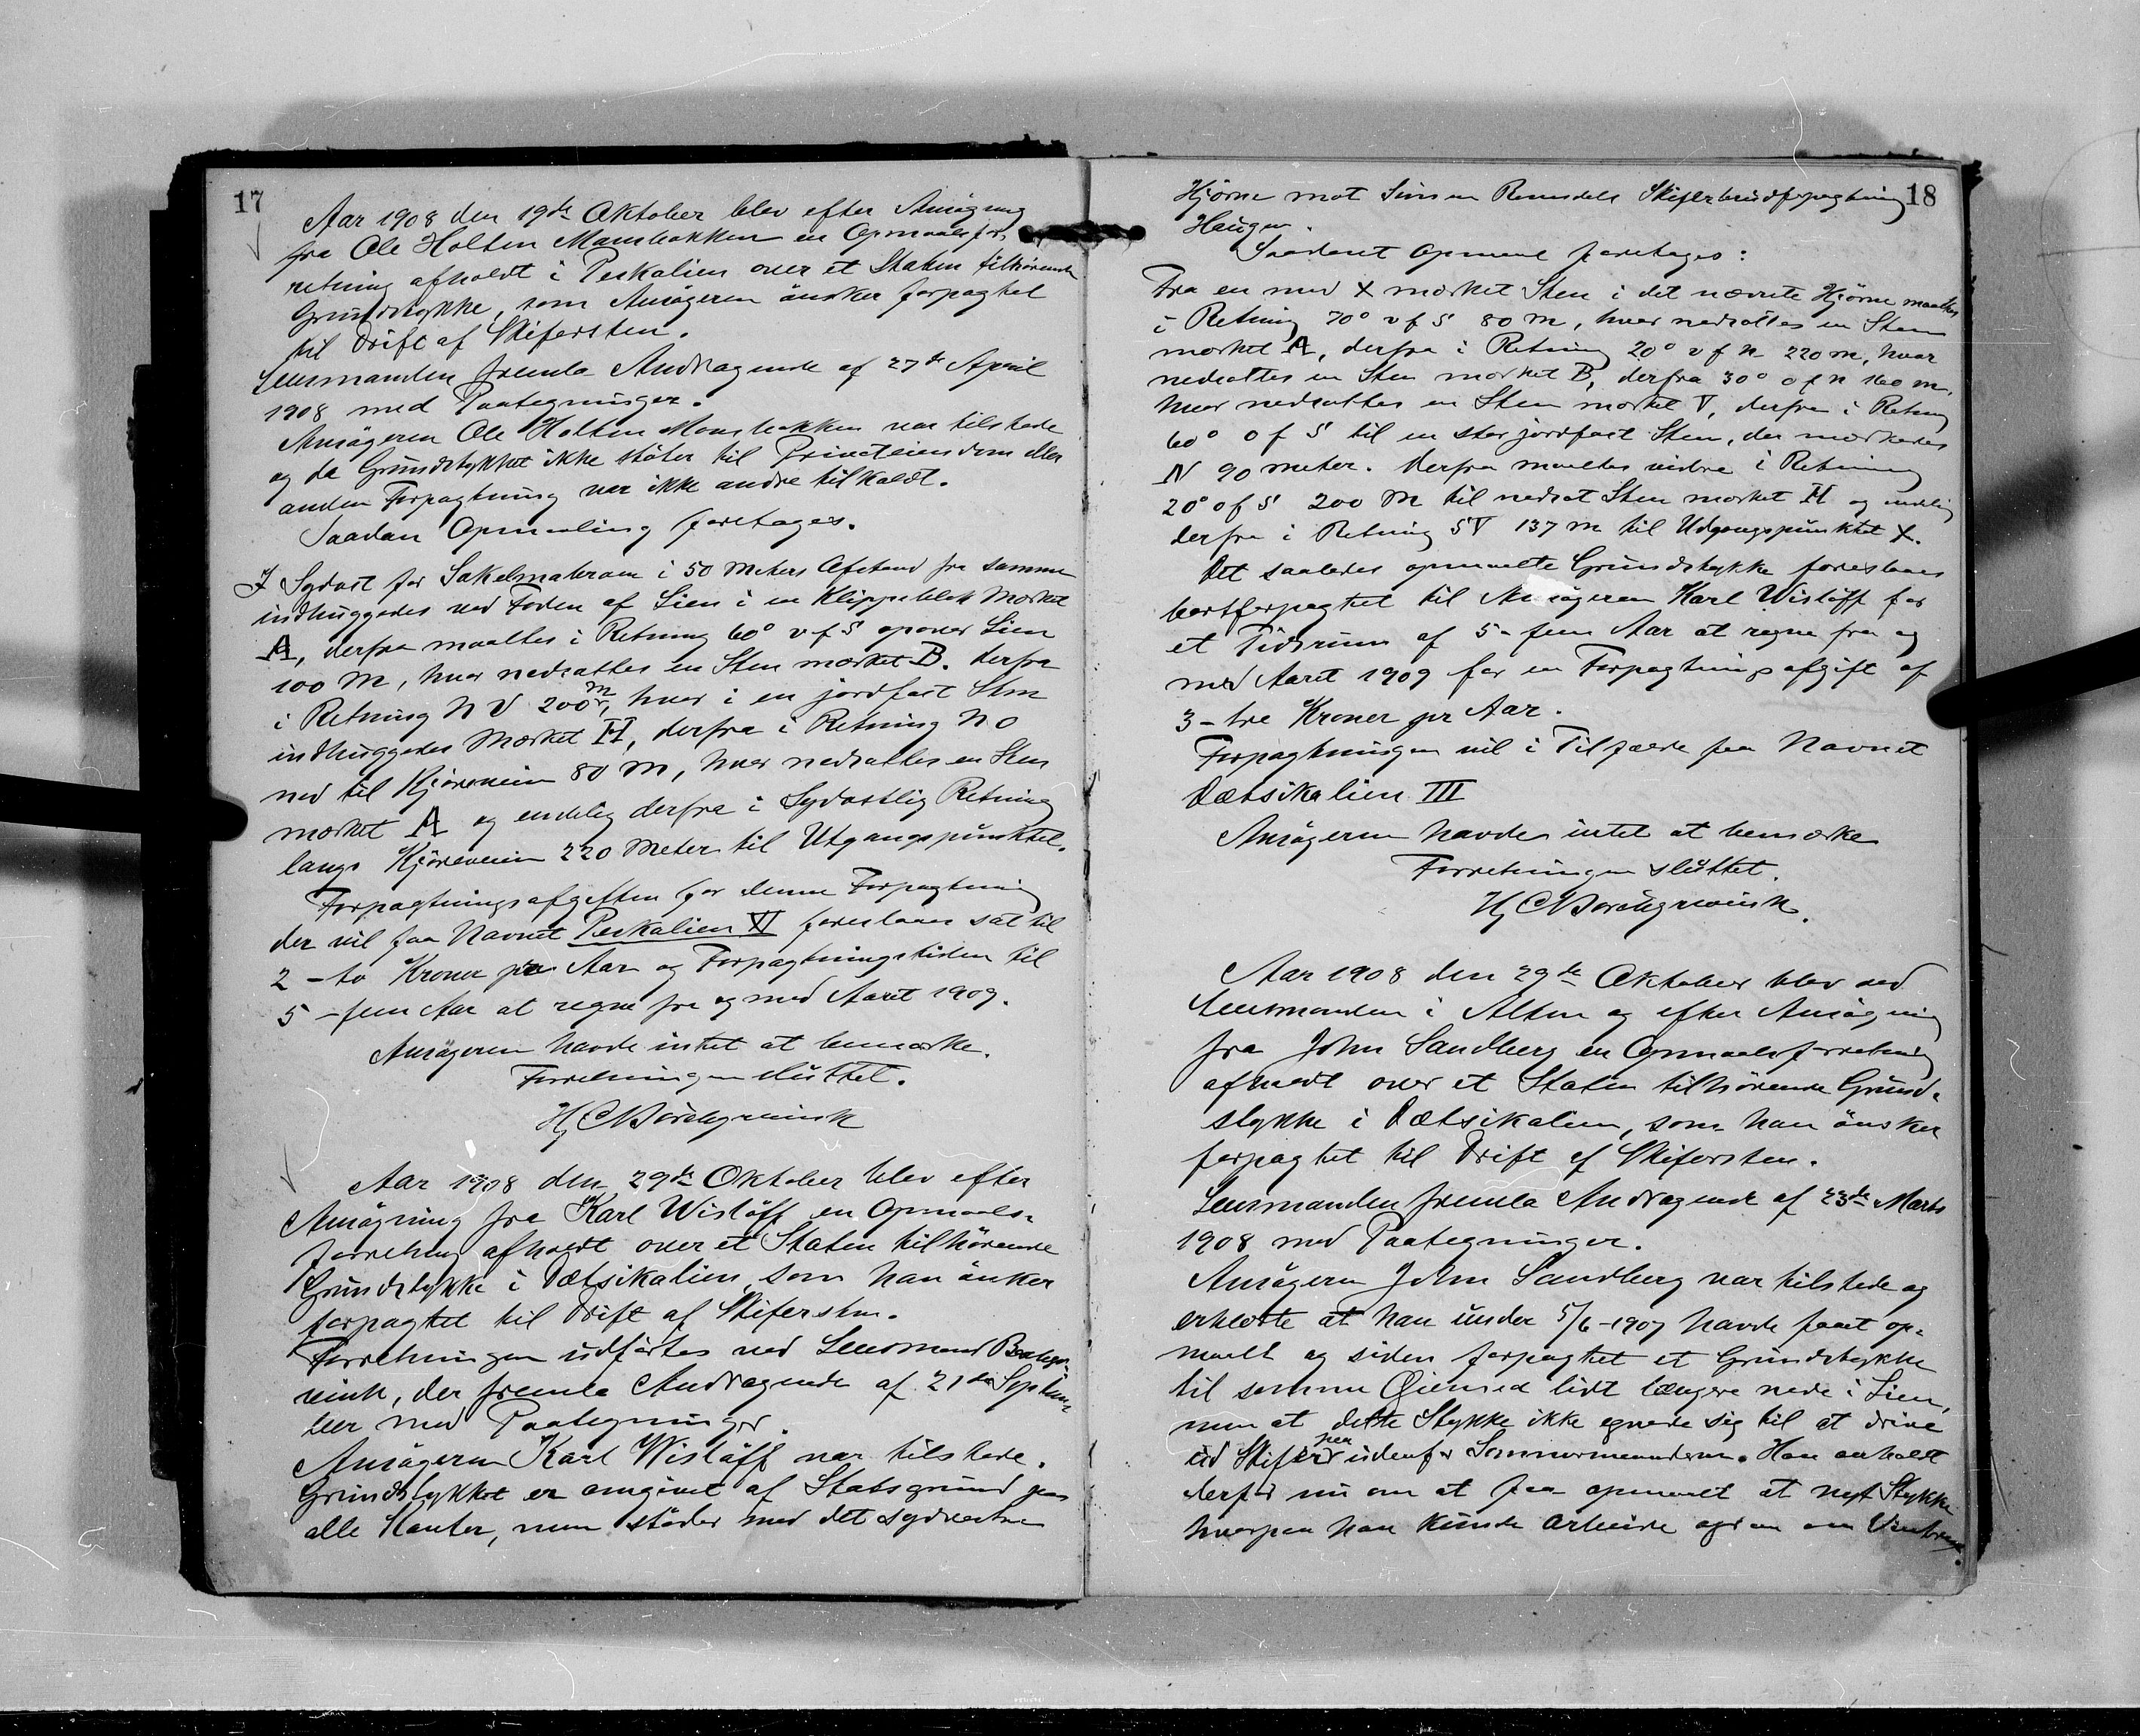 17
Aar 1908 den 19de Oktober blev efter Ansögning
fra Ole Holten Monsbakken en Opmaalsfor-
retning afholdt i Peskalien over et Staten tilhörende
Grundstykke, som Ansögeren önsker forpagtet
til Drift af Skifersten.
Lensmanden fremla Andragende af 27de April
1908 med Paategninger.
Ansögeren Ole Holten Monsbakken var tilstede
og da Grundstykket ikke stöter til Privateiendom eller
anden Forpagtning var ikke andre tilkaldt.
Saadan Opmaaling foretages.
I Sydost for Sakelmateraae i 50 Meters Afstand fra samme
indhuggedes ved Foden af Lien i en Klippeblok Mærket
A, derfra maaltes i Retning 60° v f S opover Lien
100 M, hvor nedsattes en Sten mærket B. derfra
i Retning N V 200 m, hvor i en jordfast Sten
indhuggedes Mærket H, derfra i Retning N O
ned til Kjöreveien 80 M, hvor nedsattes en Sten
mærket A og endelig derfra i Sydostlig Retning
langs Kjöreveien 220 Meter til Utgangspunktet.
Forpagtningsafgiften for denne Forpagtning
der vil faa Navnet Peskalien XI foreslaaes sat til
2 - to Kroner pr Aar og Forpagtningstiden til
5 - fem Aar at regne fra og med Aaret 1909.
Ansögeren havde intet at bemærke.
Forretningen sluttet.
Hj C Borchgrevink
Aar 1908 den 29de Oktober blev efter
Ansögning fra Karl Wislöff en Opmaals-
forretning afholdt over et Staten tilhörende
Grundstykke i Dætsikalien, som han önker
forpagtet til Drift af Skifersten.
Forretningen udförtes ved Lensmand Borchg-
revink, der fremla Andragende af 21de Septem
ber med Paategninger.
Ansögeren Karl Wislöff var tilstede.
Grundstykket er omgivet af Statsgrund paa
alle Kanter, men stöder med det sydvestre
18
Hjörne mot Simen Romsdals Skiferbrudforpagtning
Haugen.
Saadant Opmaal foretages:
Fra en med X mærket Sten i det nævnte Hjörne maaltes
i Retning 70° v f S 80 M, hvor nedsattes en Sten
mærket A, derfra i Retning 20° v f N 220 m, hvor
nedsattes en Sten mærket B, derfra 30° o f N 160 m,
hvor nedsattes en Sten mærket V, derfra i Retning
60° o f S til en stor jordfast Sten, der mærkedes
N 90 meter. Derfra maaltes videre i Retning
20° o f S 200 M til nedsat Sten mærket H og endelig
derfra i Retning SV 137 m til Udgangspunktet X.
Det saaledes opmaalte Grundstykke foreslaaes
bortforpagtet til Ansögeren Karl Wislöff for
et Tidsrum af 5 - fem Aar at regne fra og
med Aaret 1909 for en Forpagtningsafgift af
3 - tre Kroner pr Aar.
Forpagtningen vil i Tilfælde faa Navnet
Dætsikalien III
Ansögeren havde intet at bemærke
Forretningen sluttet.
Hj C Borchgrevink.
Aar 1908 den 29de Oktober blev ved
Lensmanden i Alten og efter Ansögning
fra John Sandberg en Opmaalsforretning
afholdt over et Staten tilhörende Grund-
stykke i Dætsikalien, som han önsker
forpagtet til Drift af Skifersten.
Lensmanden fremla Andragende af 23de Marts
1908 med Paategninger.
Ansögeren John Sandberg var tilstede og
erklærte at han under 5/6-1907 havde faaet op-
maalt og siden forpagtet et Grundstykke
til samme Öiemed lidt længere nede i Lien,
men at dette Stykke ikke egnede sig til at drive
ud Skifer paa udenfor Sommermaanderne. Han anholdt
derfor nu om at faa opmaalt et nyt Stykke
hvorpaa han kunde arbeide ogsaa om Vinteren.